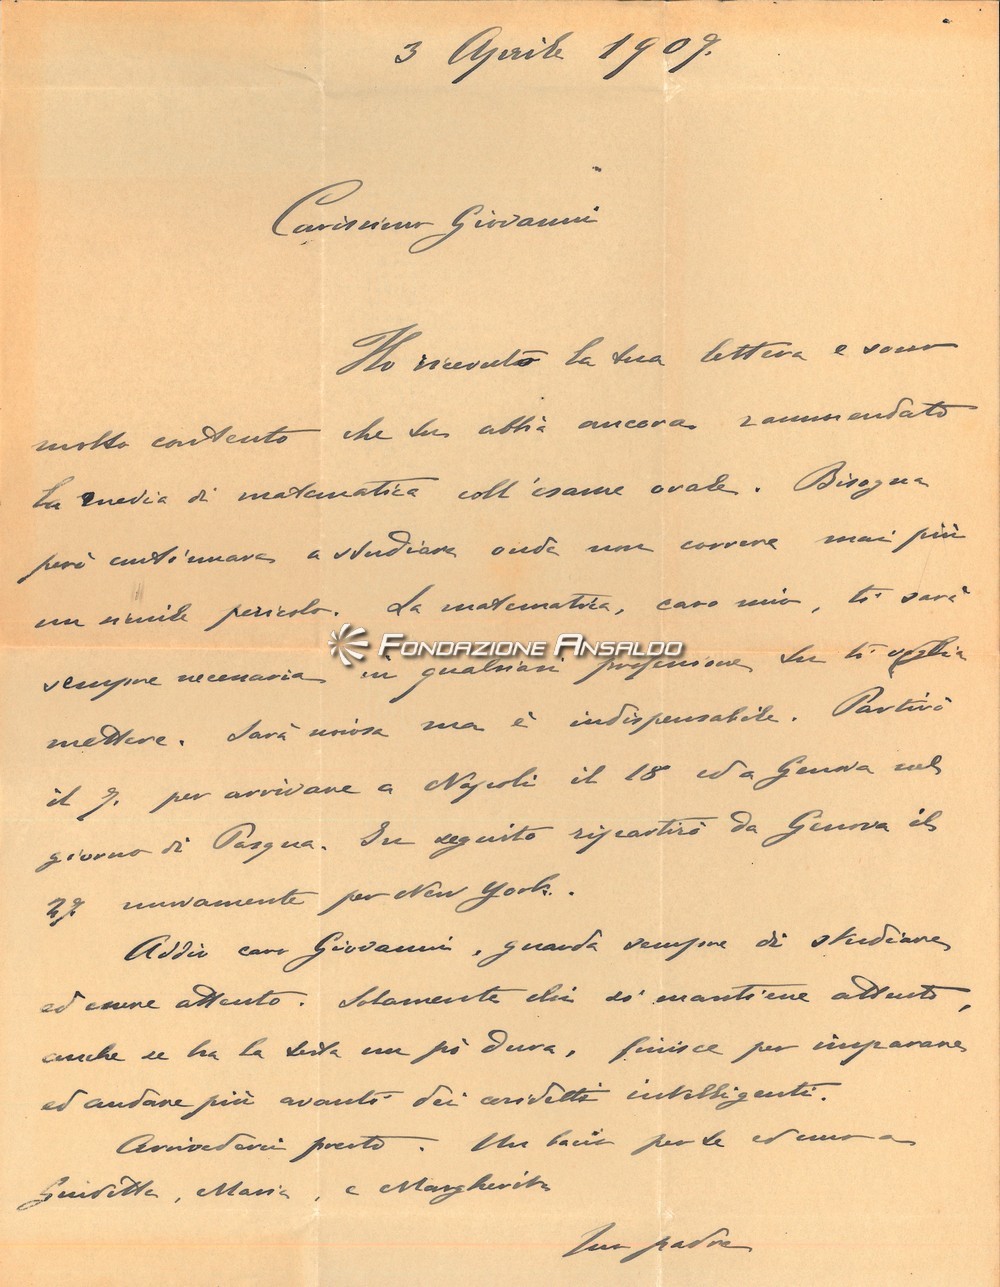 3 Aprile 1909.
Carissimo Giovanni
Ho ricevuto la tua lettera e sono
molto contento che tu abbia ancora raccomandato
la media di matematica coll'esame orale. Bisogna
però continuare a studiare onde non correre mai più
un simile pericolo. La matematica, caro mio, ti sarà
FONDAZIONE ANSALDO
sempre necessaria in qualsiasi professione tu ti voglia
mettere. Sarà noiosa ma è indispensabile. Partirò
il 7. per arrivare a Napoli il 18 ed a Genova nel
giorno di Pasqua. In seguito ripartirò da Genova il
27 nuovamente per New York.
Addio caro Giovanni, guarda sempre di studiare
ed essere attento. Solamente chi si mantiene attento,
anche se ha la testa un pò dura, finisce per imparare
ed andare più avanti dei cosidetti intelligenti.
Arrivederci presto. Un bacio per te ed uno a
Giuditta, Maria, e Margherita
Tuo padre